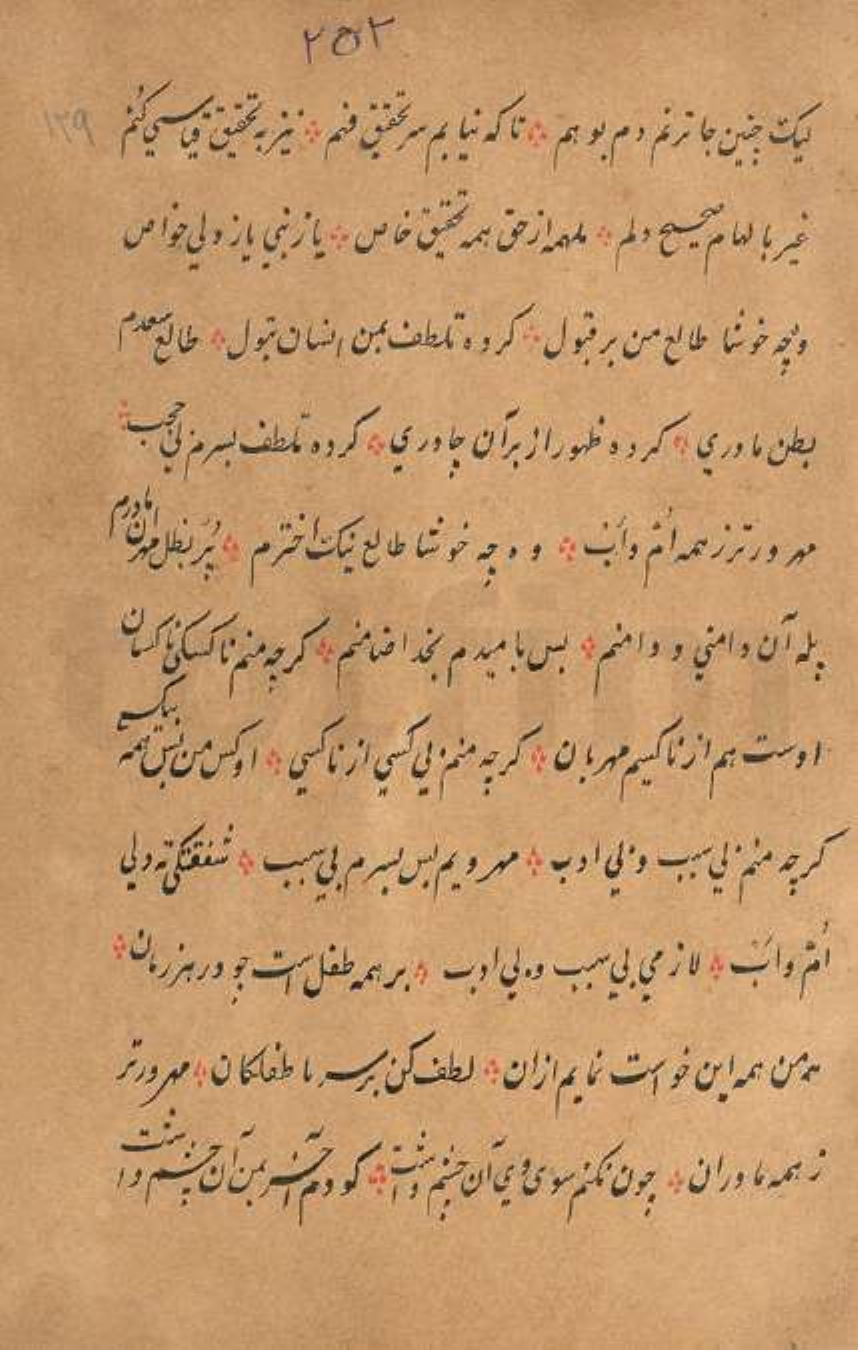 ۲۵۲
۱۲۹
لیک چنین جا نزنم دم بوهم ⁘ تا که نیابم سر تحقیق فهم ⁘ نیز به تحقیق قیاسی کنم
غیر بالهام صحیح دلم ⁘ ملهمه از حق همه تحقیق خاص ⁘ یا ز نبی یاز ولی خواص
وچه خوشا طالع من بر قبول ⁘ کرده تلطف بمن انسان بتول ⁘ طالع سعدم
بطن مادری ⁘ کرده ظهور از بر آن چادری ⁘ کرده تلطف بسرم بی حجب ⁘
مهرورتر ز همه اُمّ و أب ⁘ وه چه خوشا طالع نیک اخترم ⁘ پُر بظل مهر آن مادرم
پله آن دامنی و دامنم ⁘ بس بامیدم بخدا ضامنم ⁘ کرچه منم ناکسکی ناکسان
اوست هم از ناکسیم مهربان ⁘ کرچه منم بی کسی از ناکسی ⁘ اوکس من بس همه بیکسی
کرچه منم بی سبب و بی ادب ⁘ مهرویم بس بسرم بی سبب ⁘ شفقتکی ته دلی
اُمّ و اَبّ ⁘ لازمی بی سبب و بی ادب ⁘ بر همه طفل است چو در هر زمان ⁘
همن همه این خواست نمایم ازان ⁘ لطف کن بر سر ما طفلکان ⁘ مهرورتر
ز همه مادران ⁘ چون نکنم سوی وی آن چشم داشت ⁘ کو دم آخر بمن آن چشم داشت